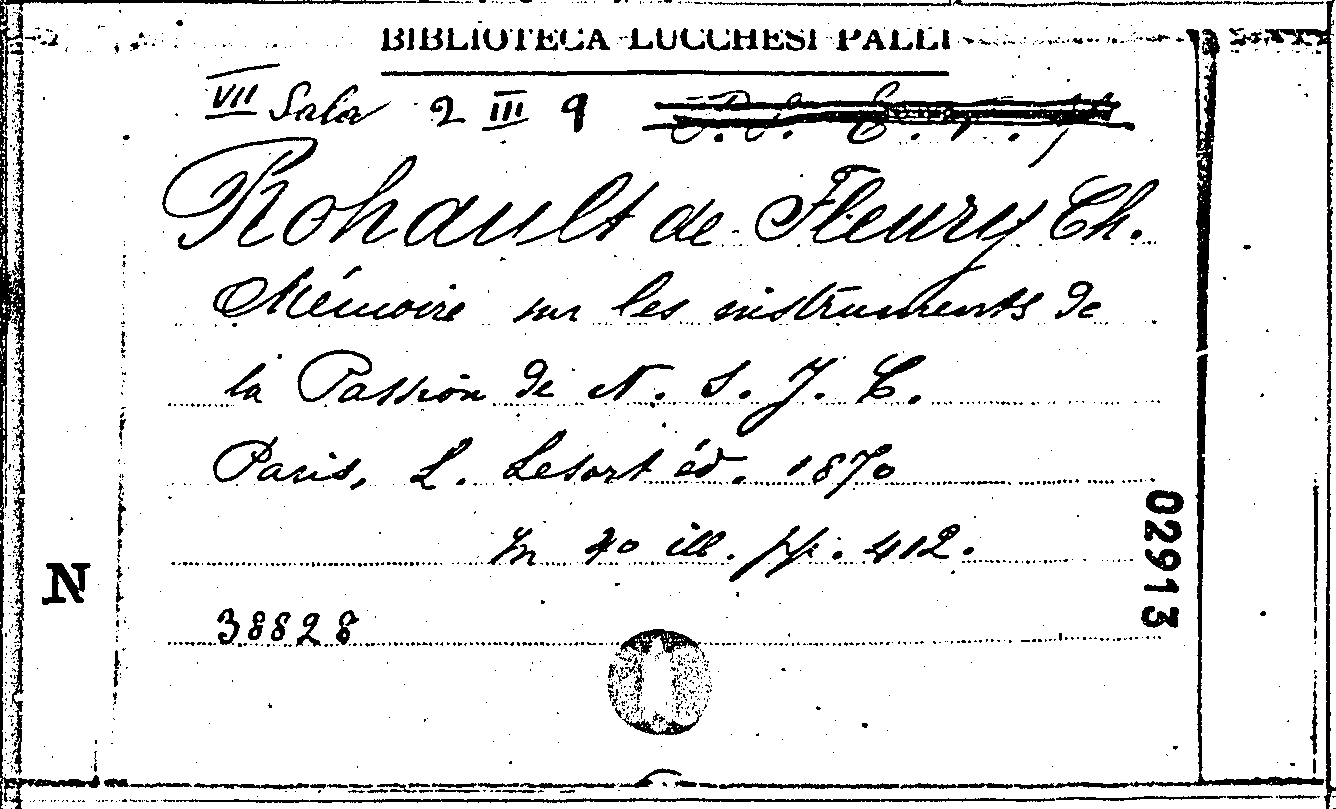 BIBLIOTECA LUCCHESI PALLI
VII Sala 2 III 9
Rohault de Fleury Ch.
Mémoire sur les instruments de
la Passion de N. S. J. C.
Paris, L. Lesort éd. 1870
In 4o ill. pp. 412.
N
38828
02913